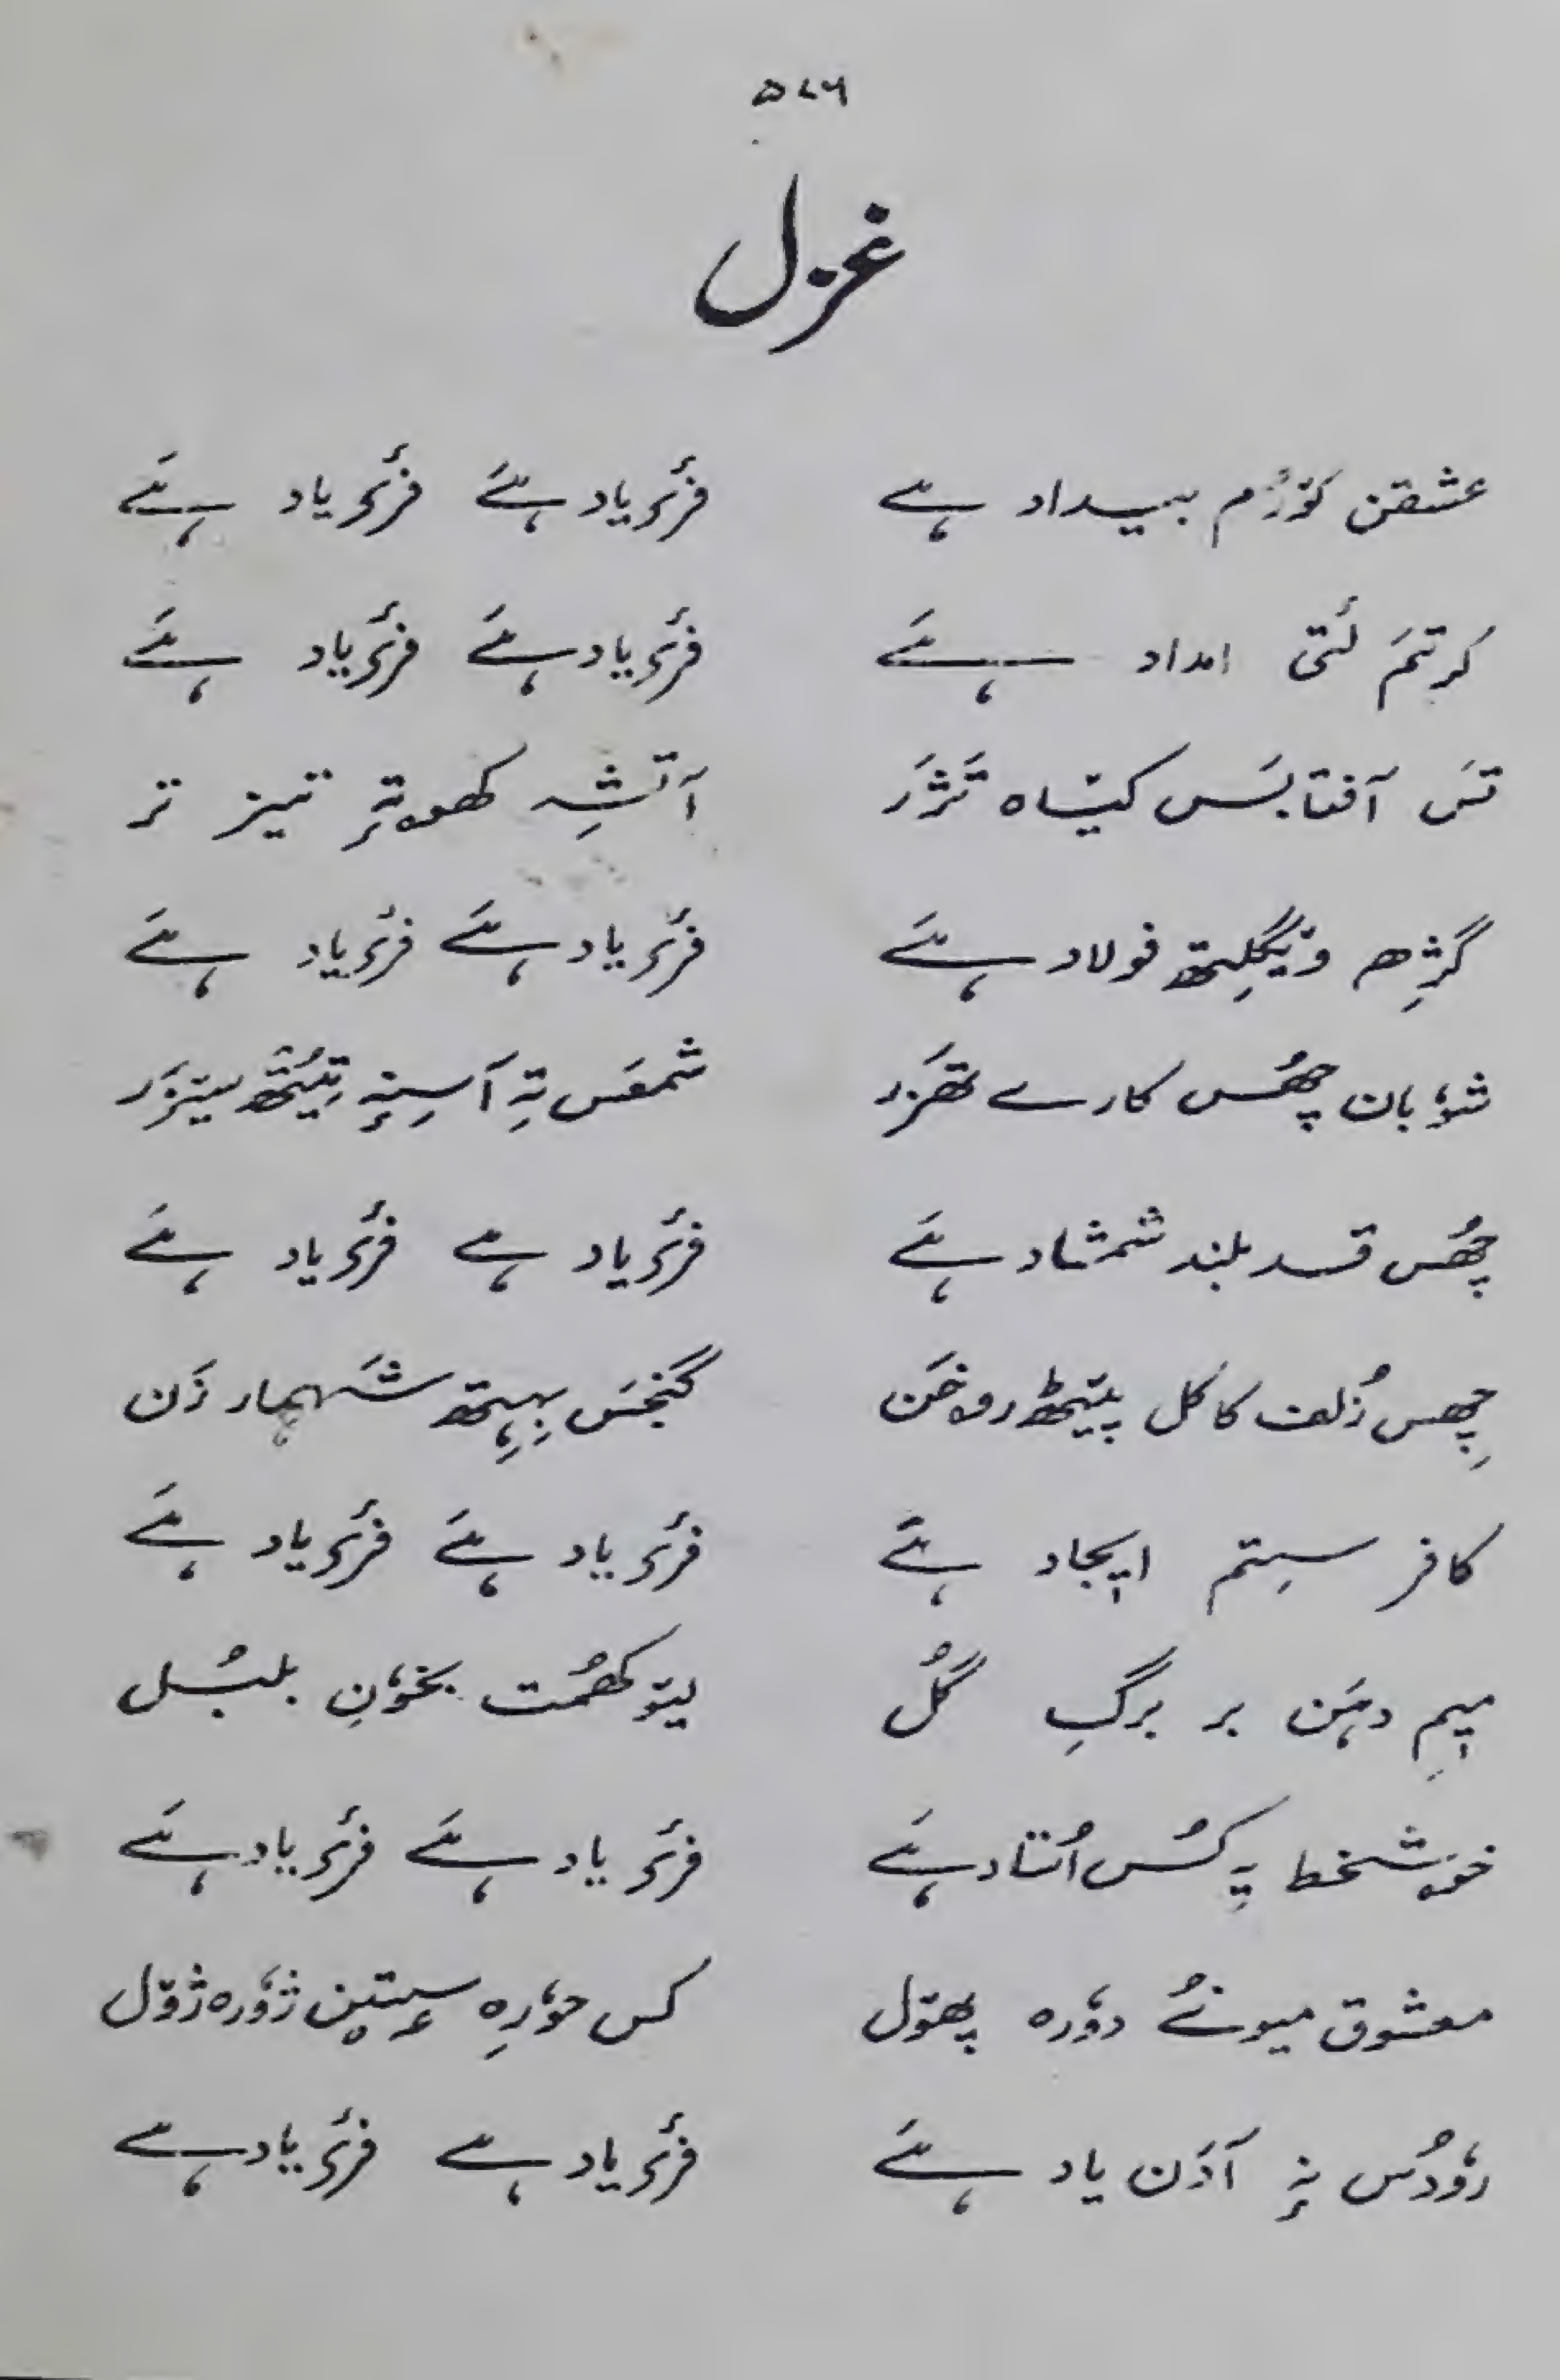 ۵۷۶
غزل
عشقن کوٚرُم بیداد ہے فرٔیاد ہےَ فرٔیاد ہےَ
کرتمَ لٔتی امداد ہےَ فرٔیاد ہےَ فرٔیاد ہےَ
تَس آفتابَس کیٚاہ تَژَر آتَشِہ کھوتہٕ تیز تر
گژِھ وٚیگلِتھ فولاد ہےَ فرٔیاد ہےَ فرٔیاد ہےَ
شوٗبان چھُس کارے تھزَر شمعَس تہٕ آسِنہٕ تیُتھ سیزَر
چھُس قد بلند شمشاد ہےَ فرٔیاد ہے فرٔیاد ہےَ
چھِس زُلف کاکل پیٚٹھ روخَن گنجَس بہِتھ شَہمار زَن
کافر سِتم ایجاد ہےَ فرٔیاد ہےَ فرٔیاد ہےَ
میمِ دہَن بر برگِ گُل لیوٚکھمُت بخوٗنِ بلبُل
خوشخط یہِ کُس اُستاد ہےَ فرٔیاد ہےَ فرٔیاد ہےَ
معشوق میونُے دوٗرہ پھوٚل کس حوٗرِہ سۭتین ژوٗرہ ژوٚل
روٗدُس نہٕ آدَن یاد ہےَ فرٔیاد ہے فرٔیاد ہے